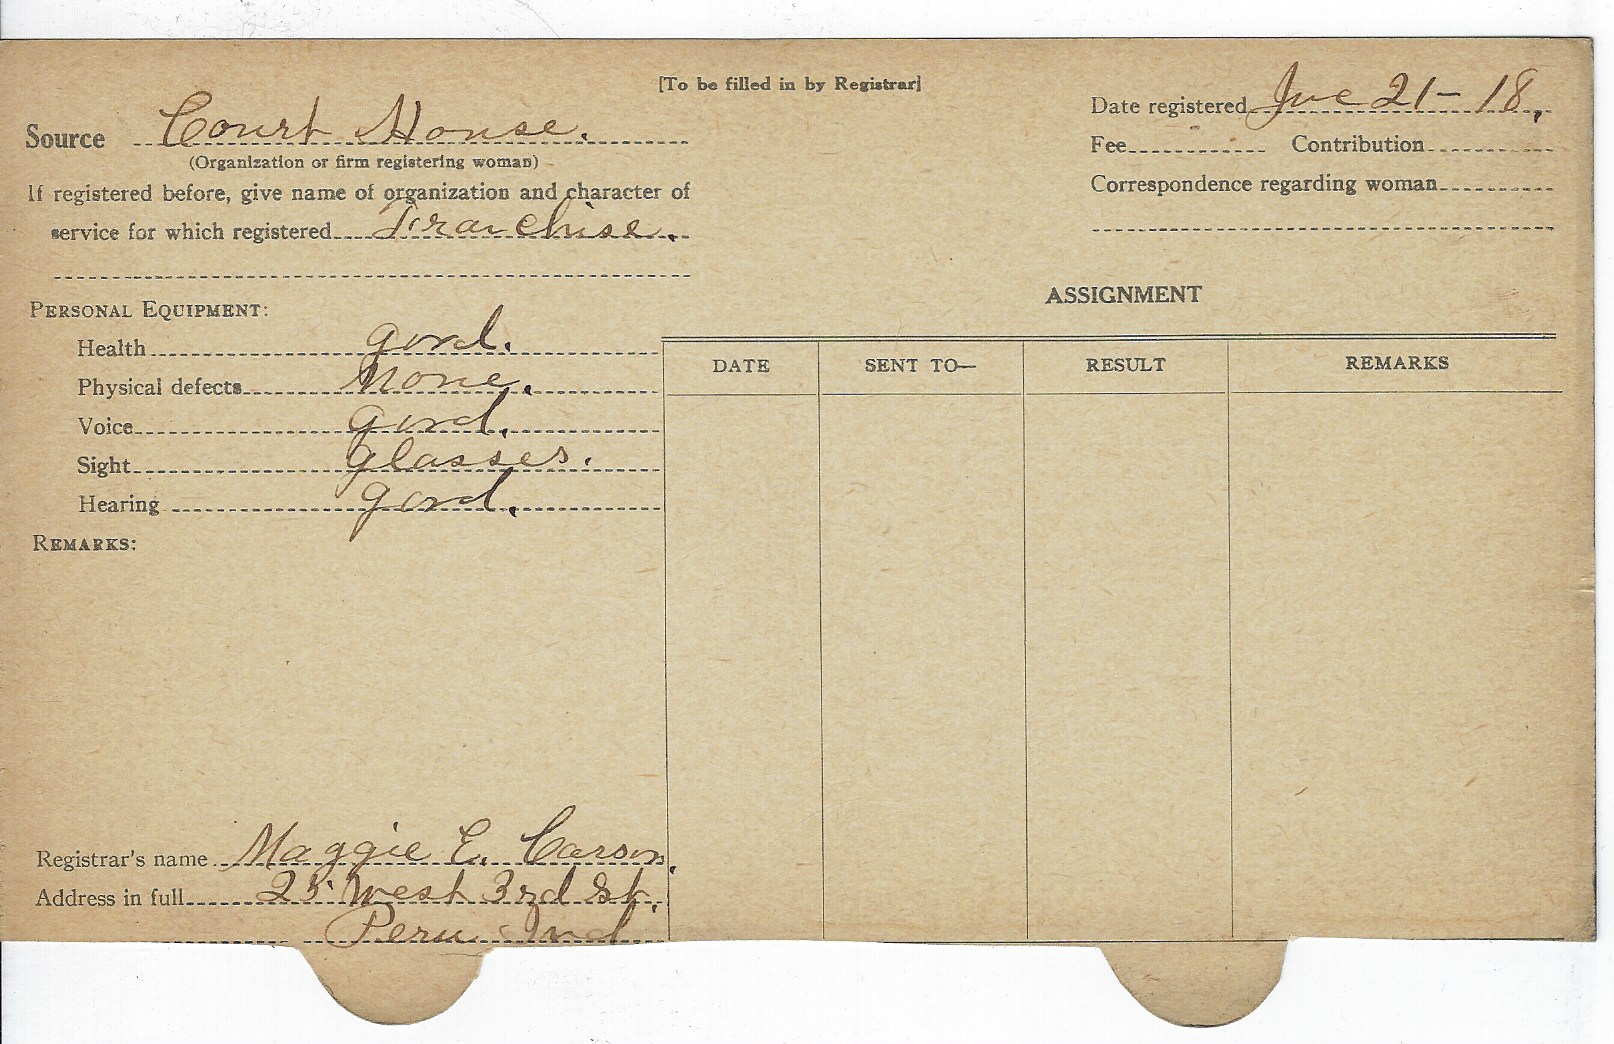 [To be filled in by Registrar]
Source Court House.
(Organization or firm registering woman)
If registered before, give name of organization and character of
service for which registered Franchise.
Date registered 21 - 18,
Fee Contribution
Correspondence regarding woman
PERSONAL EQUIPMENT:
Health good.
Physical defects None.
Voice good.
Sight glasses.
Hearing good.
REMARKS:
ASSIGNMENT
DATE SENT TO— RESULT REMARKS
Registrar's name Maggie E. Carson.
Address in full 25 West 3rd St.
Peru Ind